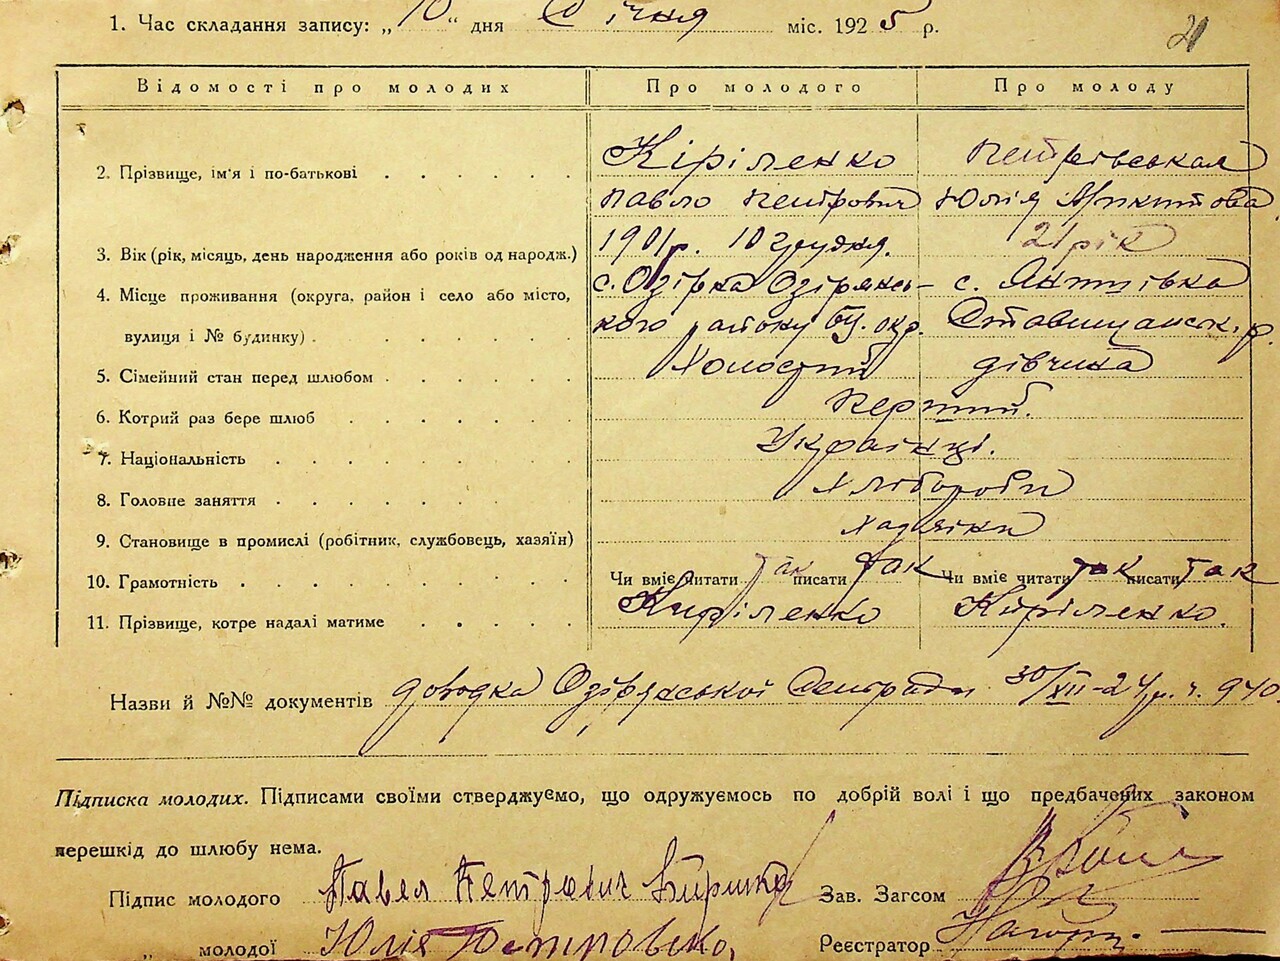 1. Час складання запису: „10“ дня Січня міс. 1925 р.
21
Відомості про молодих Про молодого Про молоду
2. Прізвище, ім'я і по-батькові . . . . . . Кіріленко Петрівськая
Павло Петрович Юлія Микитова
3. Вік (рік, місяць, день народження або років од народж.) 1901 р. 10 грудня. 21 рік
4. Місце проживання (округа, район і село або місто, с. Озірка Озірянсь- с. Янтівка
вулиця і № будинку) . . . . . . кого району БЦ. окр. Ставищанськ. р.
5. Сімейний стан перед шлюбом . . . . . . Холостий дівчина
6. Котрий раз бере шлюб . . . . . . Перший.
7. Національність . . . . . . Українці.
8. Головне заняття . . . . . . Хлібороби
9. Становище в промислі (робітник, службовець, хазяїн) Хазяіки
10. Грамотність . . . . . . Чи вміє читати так писати так Чи вміє читати так писати так
11. Прізвище, котре надалі матиме . . . . . Киріленко Киріленко.
Назви й №№ документів довідка Озірянської Сельради 30/XII-24 р. ч. 940
Підписка молодих. Підписами своїми стверджуємо, що одружуємось по добрій волі і що предбачених законом
перешкід до шлюбу нема.
Підпис молодого Павел Петрович Зав. Загсом
„ молодої Юлія Реєстратор